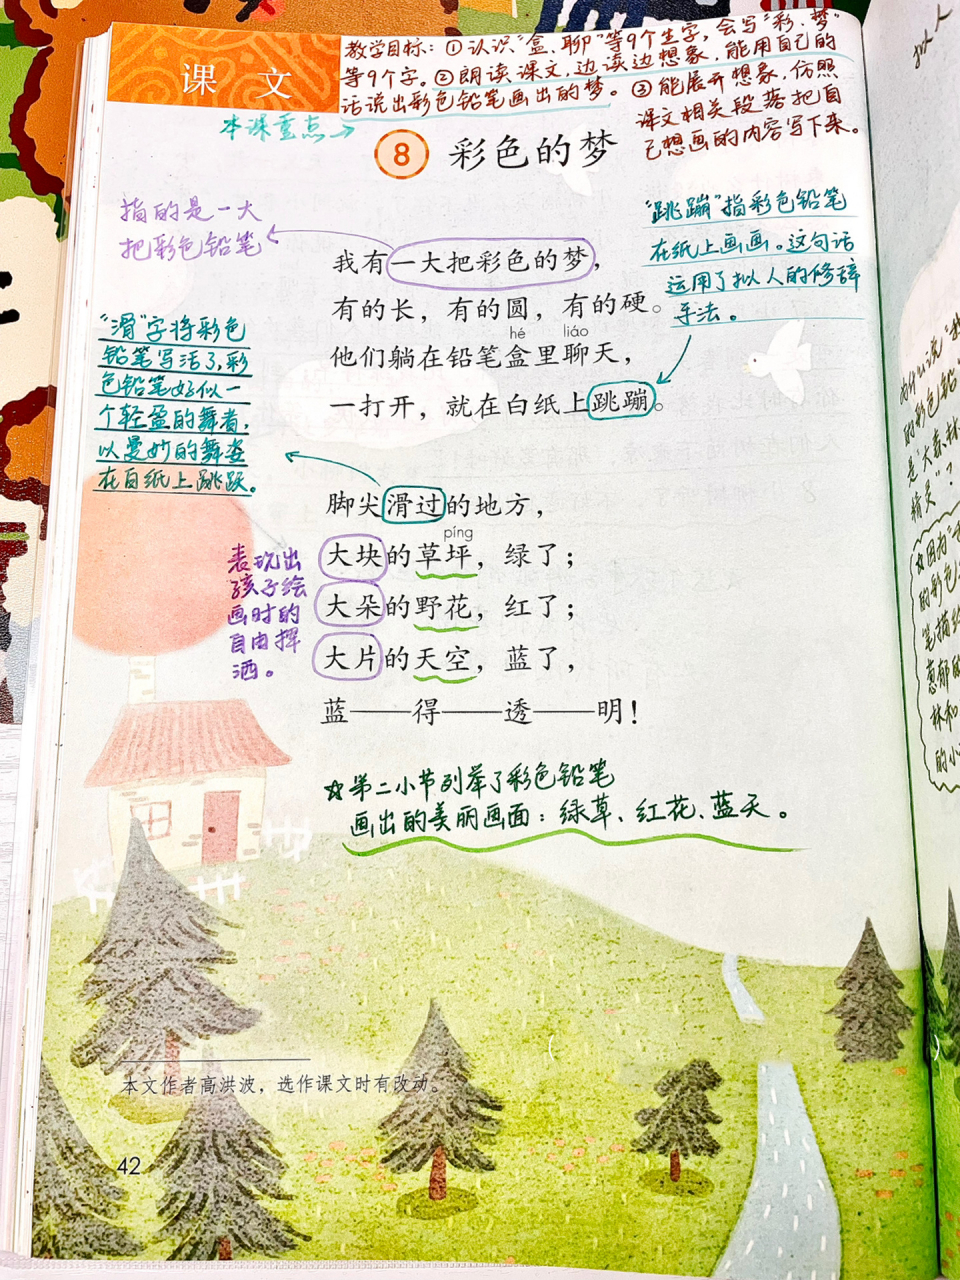 课 文
教学目标：①认识“盒、聊”等9个生字，会写“彩、梦”
等9个字。②朗读课文，边读边想象，能用自己的
话说出彩色铅笔画出的梦。③能展开想象，仿照
课文相关段落把自
己想画的内容写下来。
本课重点→
8 彩色的梦
指的是一大
把彩色铅笔
“跳蹦”指彩色铅笔
在纸上画画。这句话
运用了拟人的修辞
手法。
我有一大把彩色的梦，
有的长，有的圆，有的硬。
hé liáo
他们躺在铅笔盒里聊天，
一打开，就在白纸上跳蹦。
“滑”字将彩色
铅笔写活了，彩
色铅笔好似一
个轻盈的舞者，
以曼妙的舞姿
在白纸上跳跃。
脚尖滑过的地方，
píng
大块的草坪，绿了；
大朵的野花，红了；
大片的天空，蓝了，
蓝——得——透——明！
表现出
孩子绘
画时的
自由挥
洒。
☆第二小节列举了彩色铅笔
画出的美丽画面：绿草、红花、蓝天。
本文作者高洪波，选作课文时有改动。
42
为什么说“我
的彩色铅
是“大森林
精灵？
☆因为
的彩色
笔描绘
葱郁的
林和
的小